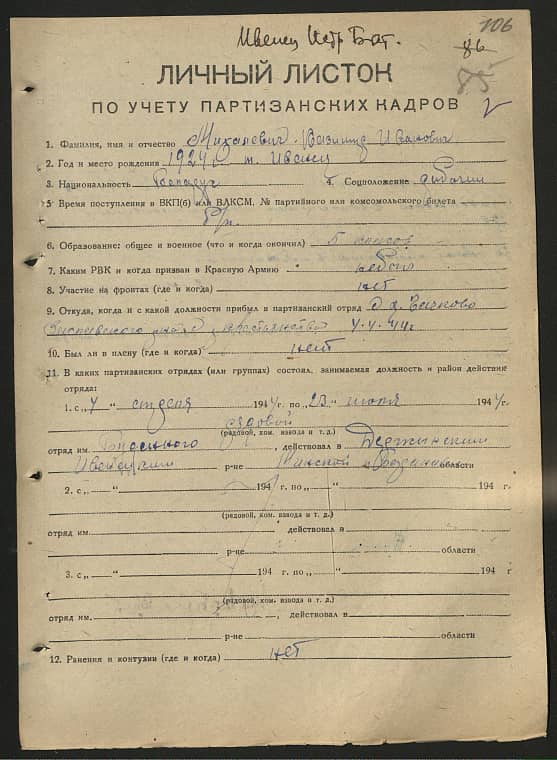 106
Ивенец Петр Бат.
86
85
ЛИЧНЫЙ ЛИСТОК
ПО УЧЕТУ ПАРТИЗАНСКИХ КАДРОВ
1. Фамилия, имя и отчество Михалевич Иванович
2. Год и место рождения 1924 г. м. Ивенец
3. Национальность Беларус 4. Соцположение рабочий
5 Время поступления в ВКП(б) или ВЛКСМ, № партийного или комсомольского билета
б/п.
6. Образование: общее и военное (что и когда окончил) 5 классов
7. Каким РВК и когда призван в Красную Армию не был
8. Участие на фронтах (где и когда) нет
9. Откуда, когда и с какой должности прибыл в партизанский отряд с д.
4.4.44г.
10. Был ли в плену (где и когда) нет
11. В каких партизанских отрядах (или группах) состоял, занимаемая должность и район действие
отряда:
1. с „4 “ апреля 1944 г. по „23 “ июля 1944 г.
рядовой
(рядовой, ком. взвода и т. д.)
отряд им. , действовал в Дзержинским
Ивенецким р-не Минской и области
2. с „ “ 194 г. по „ “ 194 г.
(рядовой, ком. взвода и т. д.)
отряд им. , действовал в
р-не области
3. с „ “ 194 г. по „ “ 194 г
(рядовой, ком. взвода и т. д.)
отряд им. , действовал в
р-не области
12. Ранения и контузии (где и когда) нет